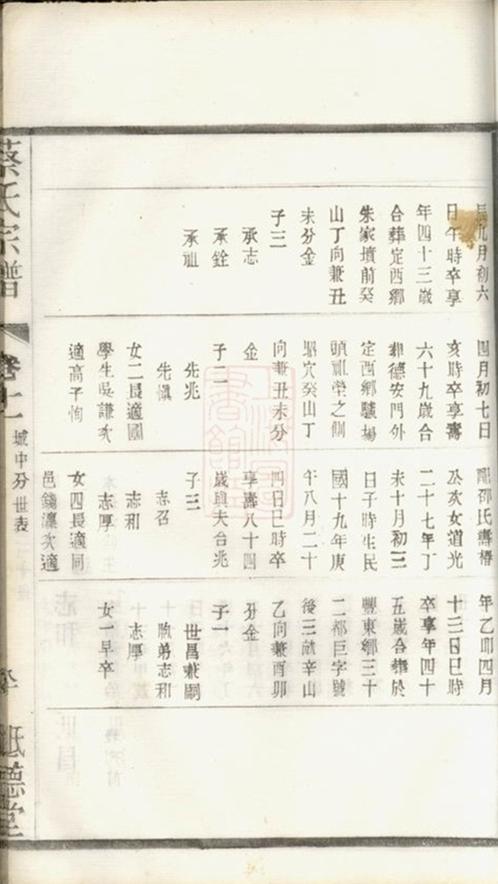 長九月初六
日午時卒享
年四十三歲
合葬定西鄉
朱家墳前癸
山丁向兼丑
未分金
子三
承志
承銓
承祖
四月初七日
亥時卒享壽
六十九歲合
葬德安門外
定西鄉騷場
頭祖塋之側
昭穴癸山丁
向兼丑未分
金
子二
先兆
先慎
女二長適國
學生吳謙次
適高子恂
配邵氏壽椿
公次女道光
二十七年丁
未十月初三
日子時生民
國十九年庚
午八月二十
四日巳時卒
享壽八十四
歲與夫合兆
子三
志召
志和
志厚
女四長適同
邑錢瀛次適
年乙卯四月
十三日巳時
卒享年四十
五歲合葬於
豐東鄉三十
二都巨字號
後三畝辛山
乙向兼酉卯
分金
子一
世昌兼嗣
胞弟志和
志厚
女一早卒
蔡氏宗譜
卷十一
城中分世表
祗德堂